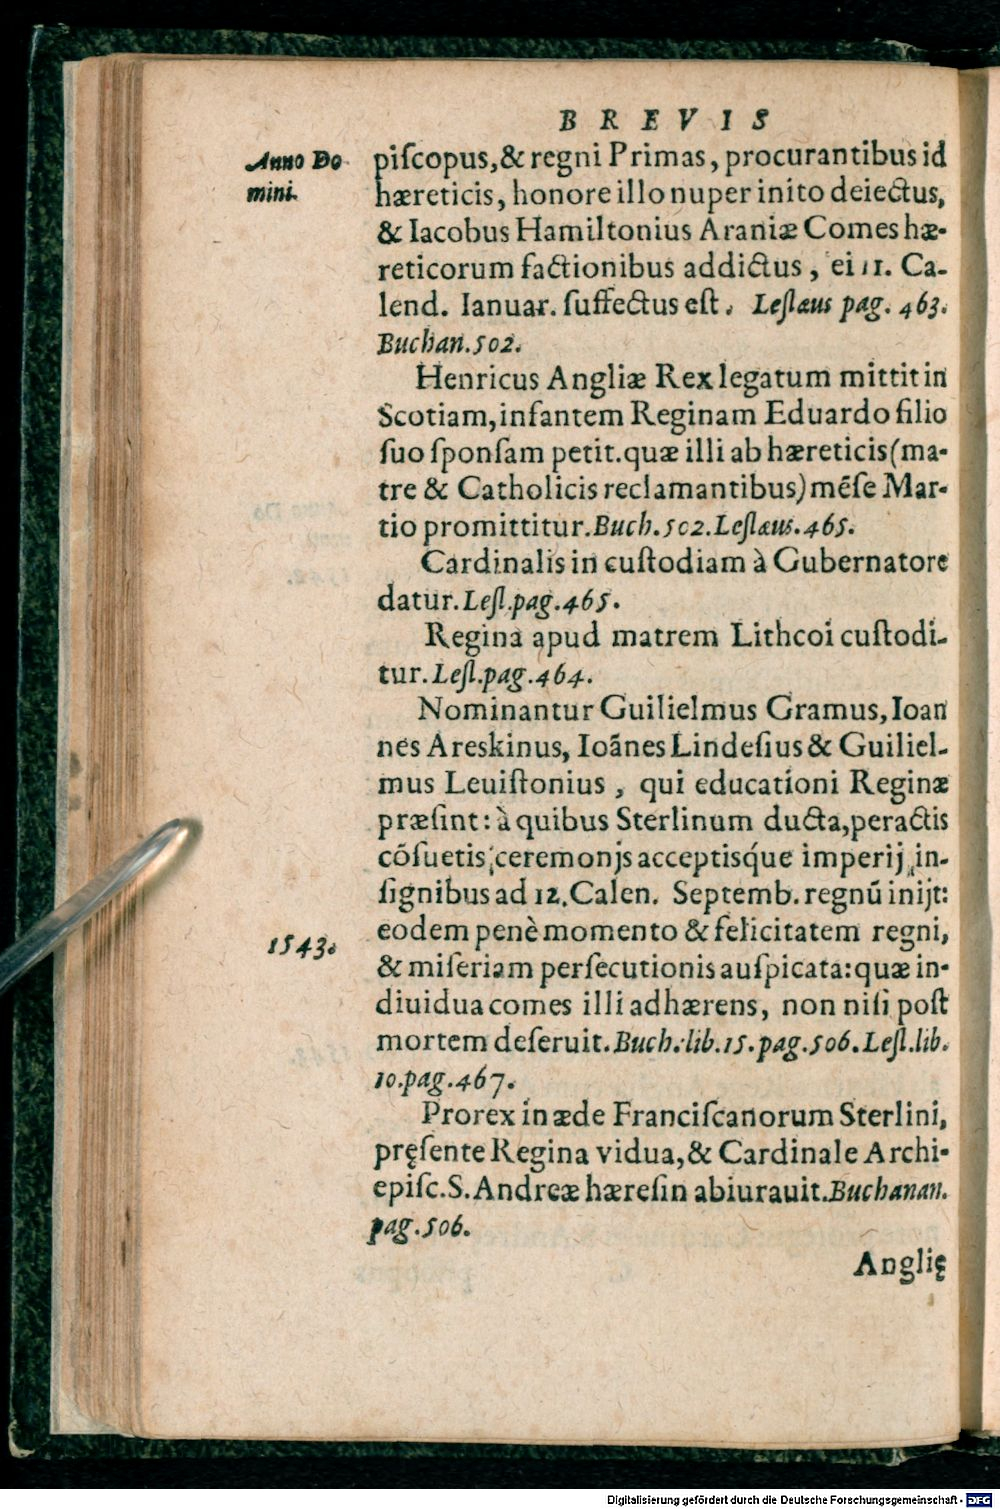 BREVIS
Anno Do
mini.
piſcopus,& regni Primas, procurantibus id
hæreticis, honore illo nuper inito deiectus,
& Iacobus Hamiltonius Araniæ Comes hæ-
reticorum factionibus addictus, ei 11. Ca-
lend. Ianuar. ſuffectus eſt. Leſlæus pag. 463.
Buchan.502.
Henricus Angliæ Rex legatum mittit in
Scotiam, infantem Reginam Eduardo filio
ſuo ſponſam petit.quæ illi ab hæreticis(ma-
tre & Catholicis reclamantibus) mēſe Mar-
tio promittitur.Buch.502.Leſlæus.465.
Cardinalis in cuſtodiam à Gubernatore
datur.Leſl.pag.465.
Regina apud matrem Lithcoi cuſtodi-
tur.Leſl.pag.464.
Nominantur Guilielmus Gramus, Ioan
nes Areskinus, Ioānes Lindeſius & Guiliel-
mus Leuiſtonius, qui educationi Reginæ
præſint: à quibus Sterlinum ducta,peractis
cōſuetis ceremonjs acceptisq́ue imperij in-
ſignibus ad 12.Calen. Septemb. regnū inijt:
1543.
eodem penè momento & felicitatem regni,
& miſeriam perſecutionis auſpicata:quæ in-
diuidua comes illi adhærens, non niſi poſt
mortem deſeruit.Buch.lib.15.pag.506.Leſl.lib.
10.pag.467.
Prorex in æde Franciſcanorum Sterlini,
pręſente Regina vidua,& Cardinale Archi-
epiſc.S.Andreæ hæreſin abiurauit.Buchanan.
pag.506.
Anglię
Digitalisierung gefördert durch die Deutsche Forschungsgemeinschaft - DFG